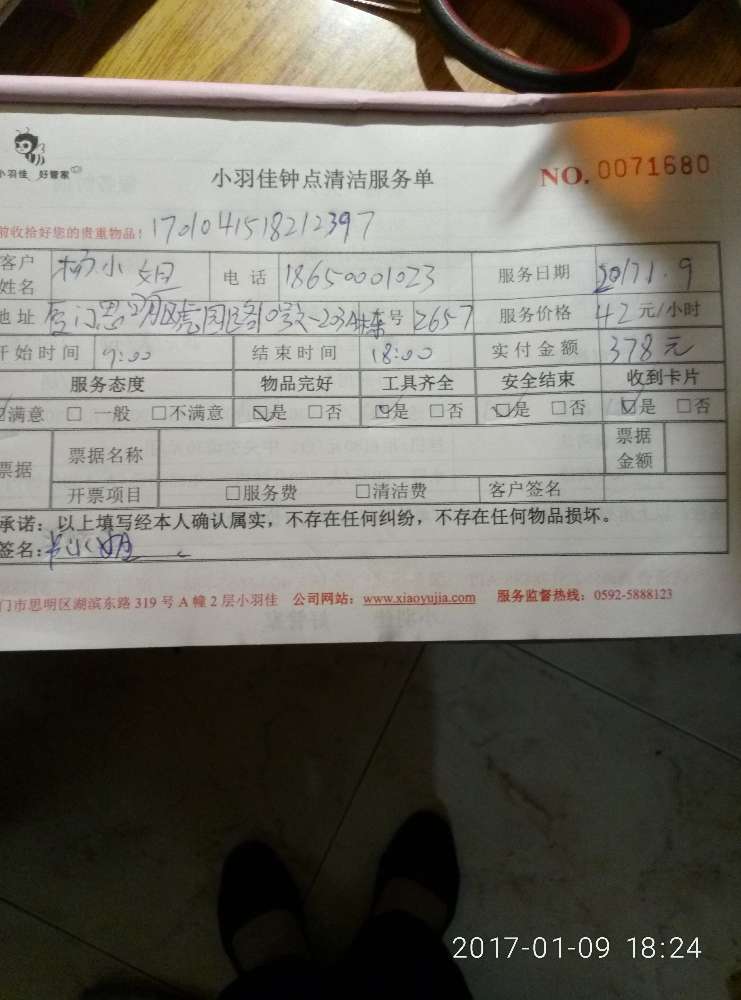 小羽佳 好管家
小羽佳钟点清洁服务单
NO. 0071680
前收拾好您的贵重物品! 1701041518212397
客户姓名 杨小姐 电话 18650001023 服务日期 2017.1.9
地址 号 2657 服务价格 42 元/小时
开始时间 9:00 结束时间 18:00 实付金额 378元
服务态度 物品完好 工具齐全 安全结束 收到卡片
☑满意 □ 一般 □不满意 ☑是 □否 ☑是 □否 ☑是 □否 ☑是 □否
票据 票据名称 票据金额
开票项目 □服务费 □清洁费 客户签名
承诺:以上填写经本人确认属实,不存在任何纠纷,不存在任何物品损坏。
签名:
门市思明区湖滨东路 319 号 A 幢 2 层小羽佳 公司网站:www.xiaoyujia.com 服务监督热线:0592-5888123
2017-01-09 18:24